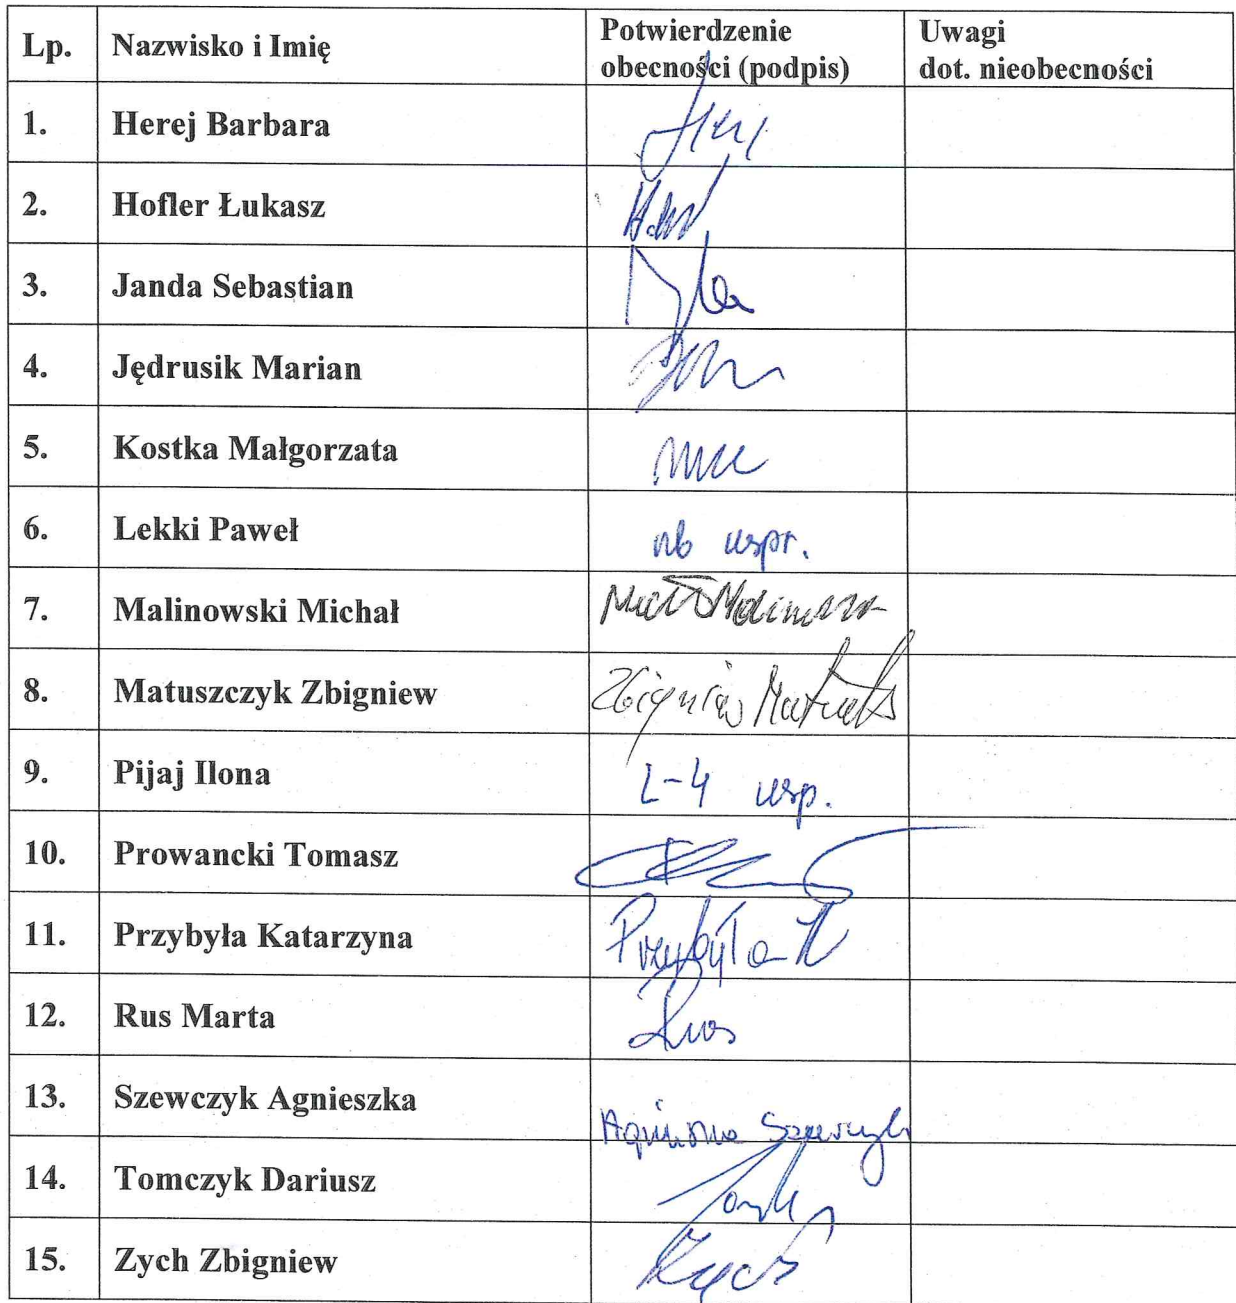 Lp. Nazwisko i Imię Potwierdzenie obecności (podpis) Uwagi dot. nieobecności
1. Herej Barbara
2. Hofler Łukasz
3. Janda Sebastian
4. Jędrusik Marian
5. Kostka Małgorzata
6. Lekki Paweł nb uspr.
7. Malinowski Michał
8. Matuszczyk Zbigniew Zbigniew
9. Pijaj Ilona L-4 usp.
10. Prowancki Tomasz
11. Przybyła Katarzyna Przybyła K
12. Rus Marta Rus
13. Szewczyk Agnieszka Agnieszka Szewczyk
14. Tomczyk Dariusz
15. Zych Zbigniew Zych